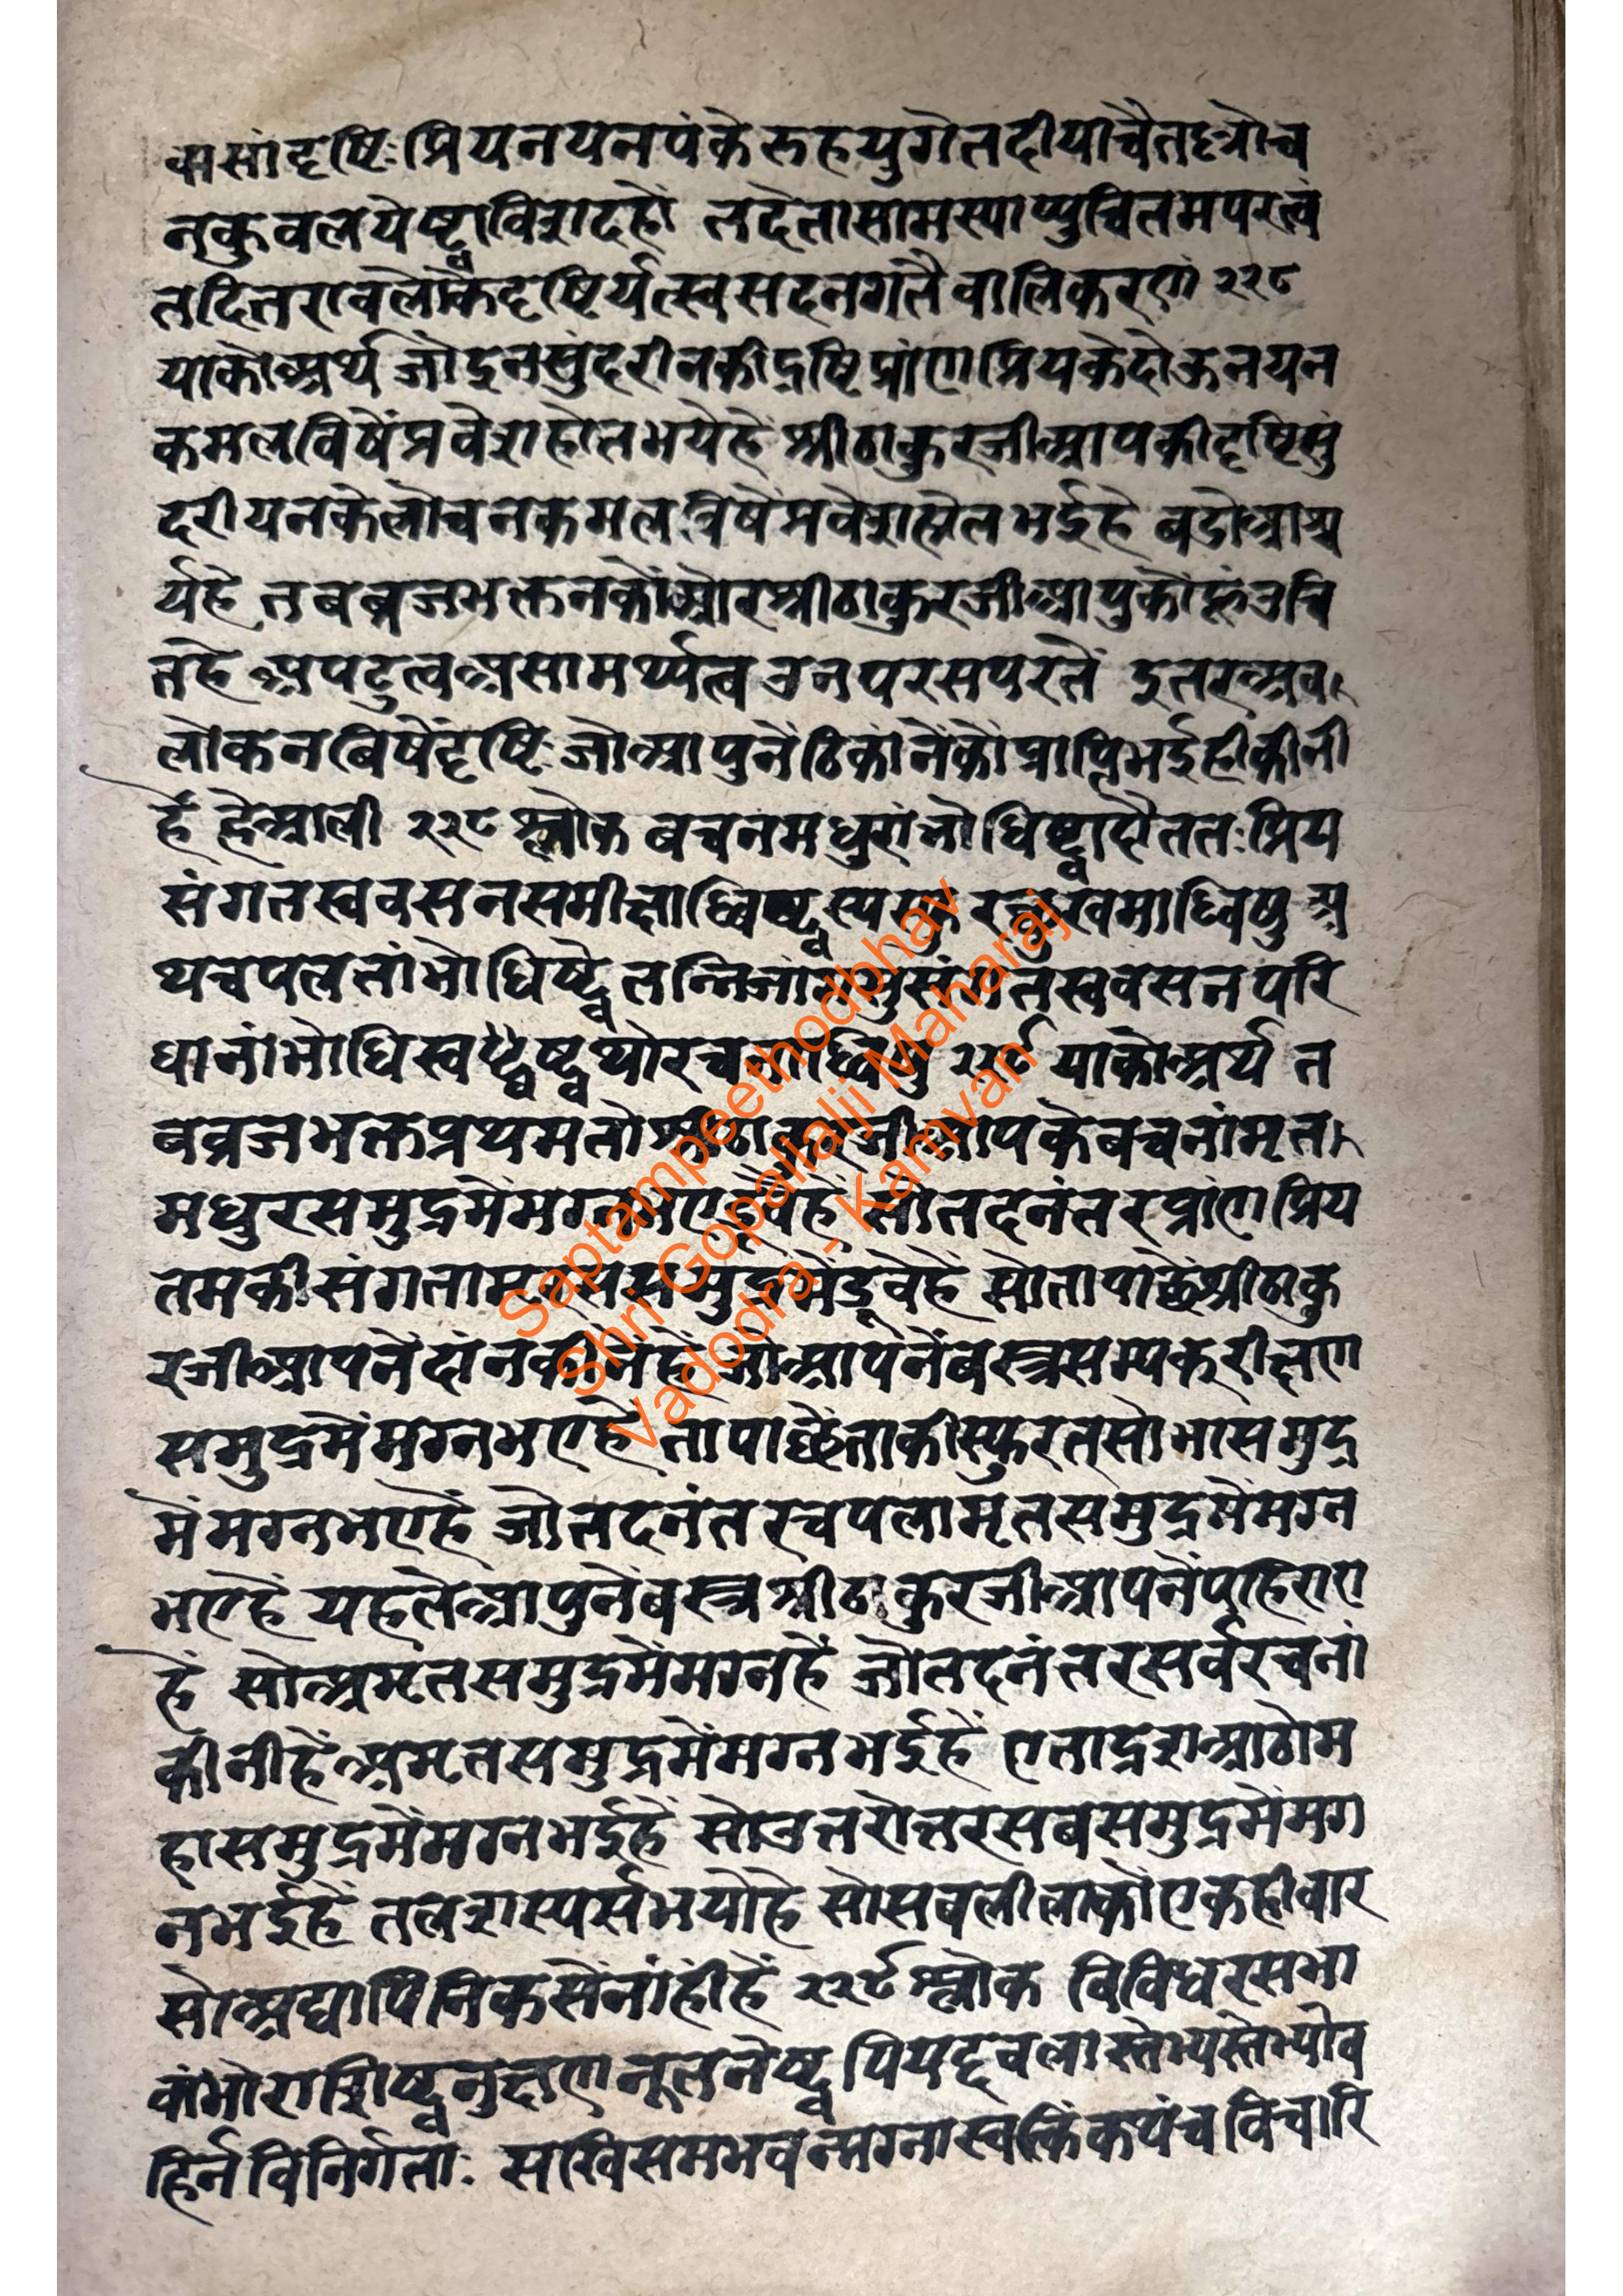 कासांदृष्टिःप्रियनयनपंकेरुहयुगेतदीयाचैतदृग्रोच
नकुवलयेष्वाविशदहो तदेतासामस्याप्युचितमपरत्वं
तदितरावलोकेदृष्टिर्यत्स्वसदनगतैवालिकरणं २२८
याकोअर्थ जोइनसुंदरीनकीद्रष्टिप्रांणप्रियकेदोऊनयन
कमलविषेंप्रवेशहोतभयेहें श्रीठाकुरजीआपकीदृष्टिसुं
दरीयनकेलोचनकमलविषेंप्रवेशहोतभईहे बडोआश्च
र्यहे तबब्रजभक्तनकोंओरश्रीठाकुरजीआपुकोंहूंउचि
तहे अपटुत्वअसामर्थ्यत्वउनपरसपरतें इतरअव
लोकनबिषेंदृष्टिःजोआपुनेंठिकांनेंकोंप्राप्तिभईहींकीनी
हें हेआली २२८ श्लोक बचनमधुरांभोधिष्वादौततःप्रिय
संगतस्ववसनसमीक्षाब्धिष्वस्यस्फुरत्सुखमाब्धिषु अ
थचपलतांभोधिष्वेतन्निजांसमुसंगतस्ववसनपरि
धानांभोधिस्वष्वथोरचनाब्धिषु २२९ याकोअर्थ त
बब्रजभक्तप्रथमतोश्रीठाकुरजीआपकेबचनांमृत
मधुरसमुद्रमेंमग्नभएहे तोतदनंतरप्रांणप्रिय
तमकीसंगतामृतसमुद्रमेंडूबेहें सोतापाछेंश्रीठाकु
रजीआपनेंदांनकीनेंहें जोआपनेंबस्त्रसम्यकरीक्षण
समुद्रमेंमग्नभएहे तापाछेंताकीस्फुरत्सोभासमुद्र
मेंमग्नभएहें जोतदनंतरचपलामृतसमुद्रमेंमग्न
भएहें यहलेआपुनेंबस्त्रश्रीठाकुरजीआपनेंपहिराए
हें सोअमृतसमुद्रमेंमग्नहें जोतदनंतरसर्वरचनां
कीनीहेंअमृतसमुद्रमेंमग्नभईहें एताद्रशआठोम
हासमुद्रमेंमग्नभईहें सोउत्तरोत्तरसबसमुद्रमेंमग
नभईहें तलशस्पर्सभयोहे सोसबलीलाकोंएकहीबार
सोअद्यापिनिकसेंनांहींहें २२९ श्लोक विविधरसभा
वांभोराशिष्वनुक्षणनूतनेष्वपियदृवलास्तेभ्यस्तेभ्योब
हिर्नविनिर्गताः सखिसमभवन्मग्नास्वत्किंकपंचविचारि
Saptampeethodbhav
Shri Gopallalji Maharaj
Vadodra - Kamvan